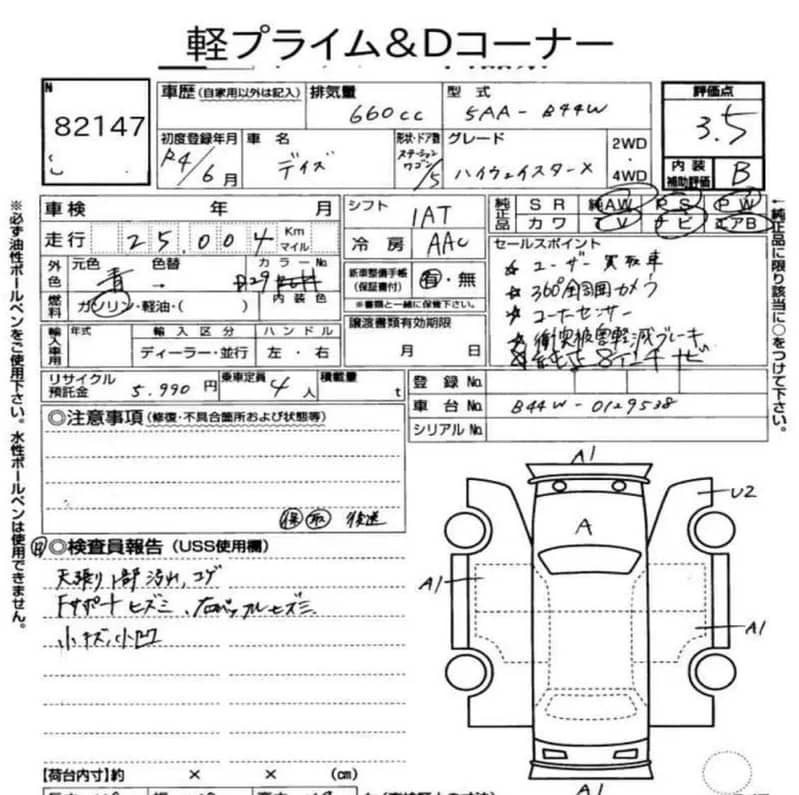 軽プライム&Dコーナー
N 82147
車歴(自家用以外は記入) 排気量 660cc 型式 5AA-B44W 評価点 3.5
初度登録年月 R4/6月 車名 デイズ 形状・ドア数 ステーションワゴン/5 グレード ハイウェイスターX 2WD・4WD 内装補助評価 B
車検 年 月
走行 25,004 Km マイル
外色 元色 青 → 色替 カラーNo.
燃料 ガソリン・軽油・( ) 内装色
輸入車用 年式 輸入区分 ハンドル
ディーラー・並行 左・右
シフト IAT
冷房 AAC
新車整備手帳(保証書付) 有・無
※書類と一緒に保管下さい。
譲渡書類有効期限
月 日
純正品 SR 純AW PS PW
カワ TV ナビ エアB
セールスポイント
☆ ユーザー買取車
☆ 360°全周囲カメラ
☆ コーナーセンサー
☆ 衝突被害軽減ブレーキ
8インチナビ
リサイクル預託金 5,990円 乗車定員 4人 積載量 t
登録No.
車台No. B44W-0129538
シリアルNo.
◎注意事項(修復・不具合箇所および状態等)
保 取 後送
◎検査員報告(USS使用欄)
天張り1部汚れ、コゲ
Fサポートヒズミ、右バッフルヒズミ
小キズ、小凹
A1
A
U2
A1
A1
A1
【荷台内寸】約 × × (cm)
※必ず油性ボールペンをご使用下さい。水性ボールペンは使用できません。
←純正品に限り該当に○をつけて下さい。